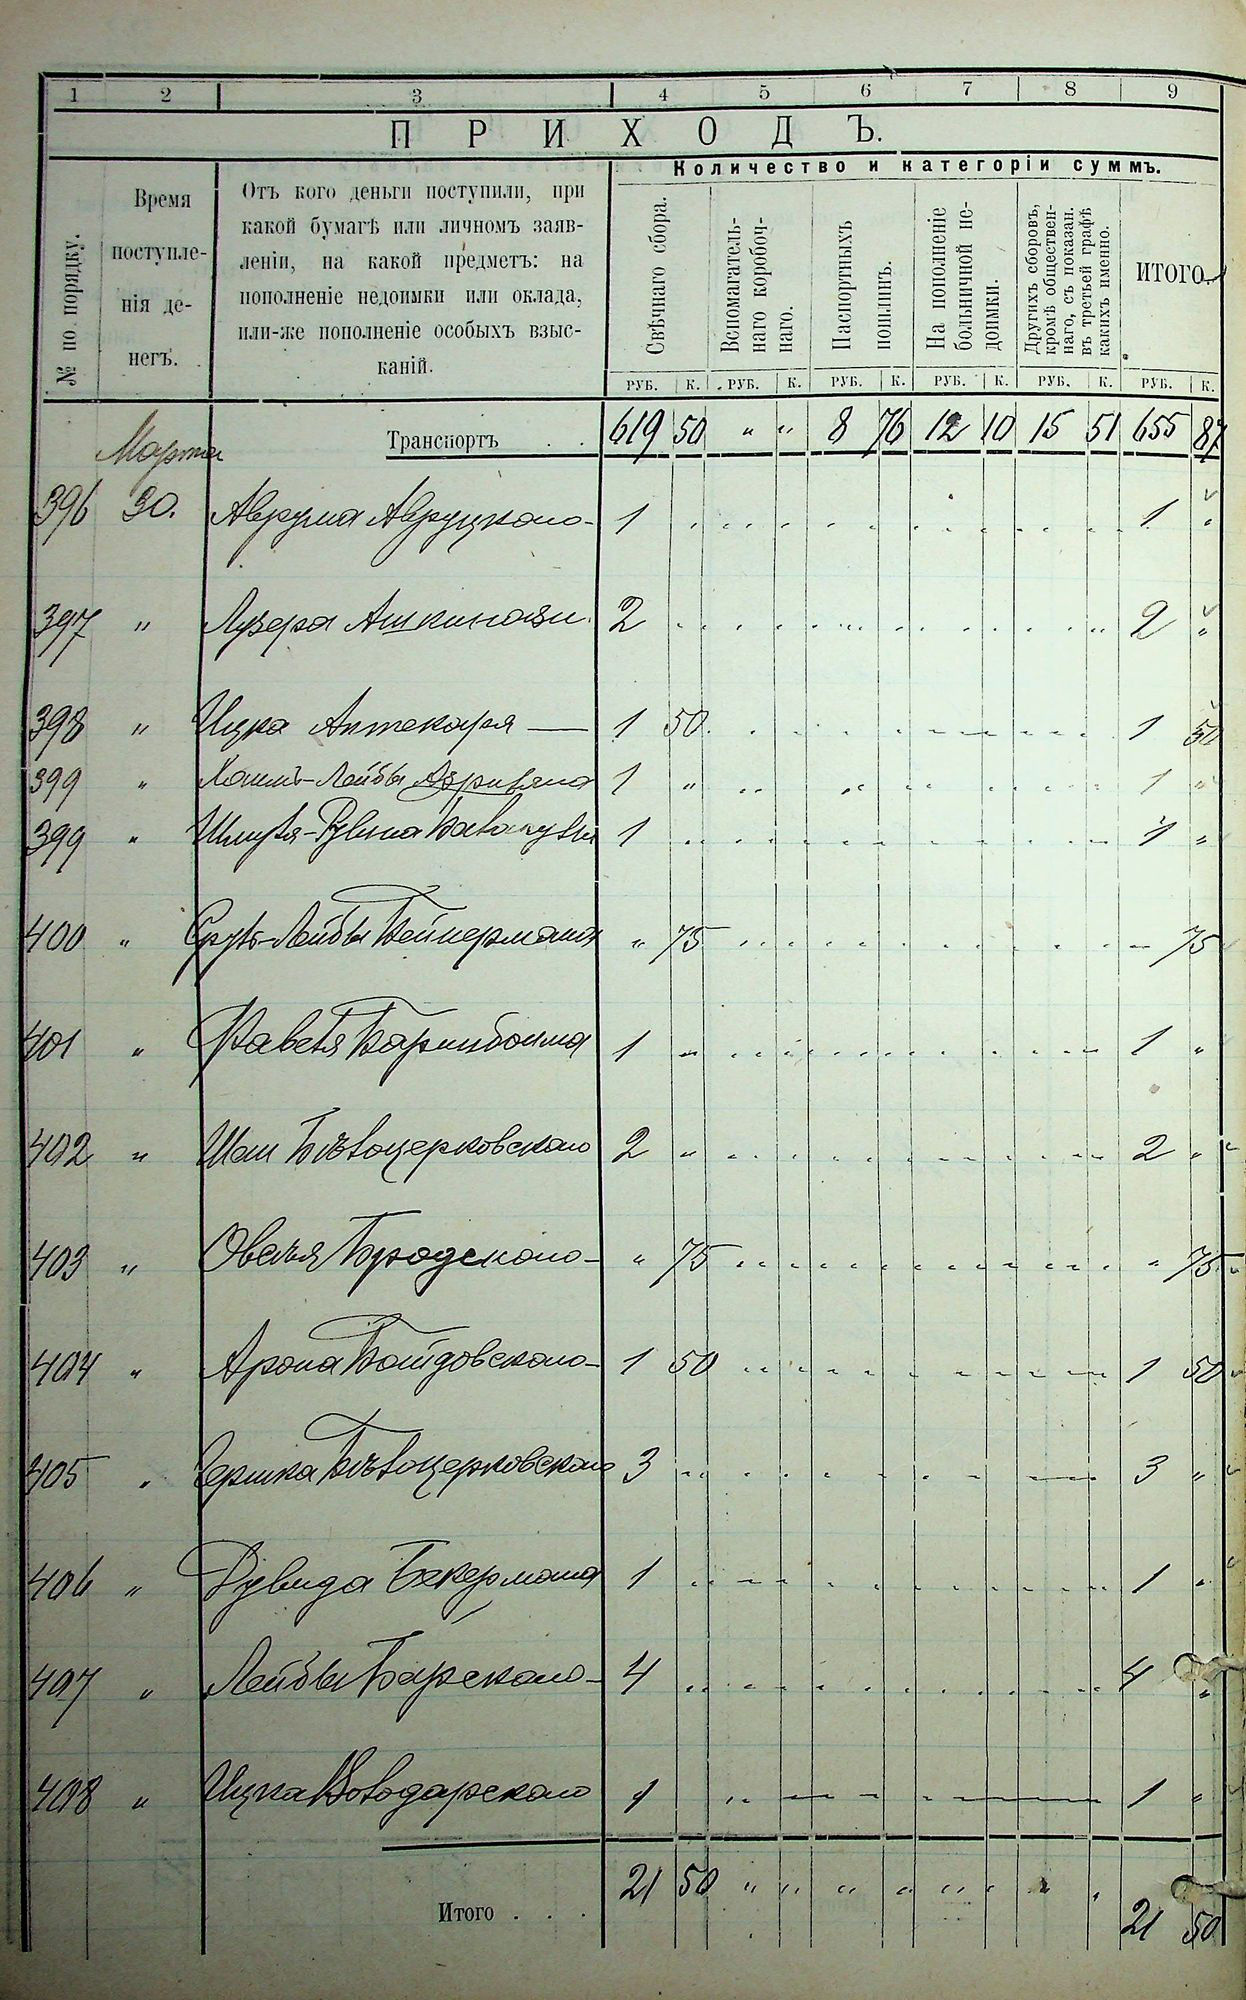 1 2 3 4 5 6 7 8 9
ПРИХОДЪ.
Количество и категоріи суммъ.
№ по порядку.
Время
поступле-
нія де-
негъ.
Отъ кого деньги поступили, при
какой бумагѣ или личномъ заяв-
леніи, на какой предметъ: на
пополненіе недоимки или оклада,
или-же пополненіе особыхъ взыс-
каній.
Свѣчнаго сбора.
Вспомагатель-
наго коробоч-
наго.
Паспортныхъ
пошлинъ.
На пополненіе
больничной не-
доимки.
Другихъ сборовъ,
кромѣ обществен-
наго, съ показан.
въ третьей графѣ
какихъ именно.
ИТОГО.
РУБ. К. РУБ. К. РУБ. К. РУБ. К. РУБ. К. РУБ. К.
Транспортъ . . 619 50 " " 8 76 12 10 15 51 655 87
Марта
396 30. Аврума Авруцкаго 1 1 "
397 " Лузера Ашкинази 2 2 "
398 " Ицка Аптекаря — 1 50 1 50
399 " Хаимъ-Лейбы 1 " 1 "
399 " 1 1 "
400 " Сруль-Лейбы Бейнермана " 75 75
401 " Баринбойма 1 " 1 "
402 " Шаи Бѣлоцерковскаго 2 " 2 "
403 " Овсѣя Бродскаго " 75 " 75
404 " Арона 1 50 1 50
405 " Гершка Бѣлоцерковскаго 3 3 "
406 " Дувида Бекермана 1 1 "
407 " Лейбы Барскаго 4 4 "
408 " Ицка Володарскаго 1 1 "
Итого . . . 21 50 " " " " " " 21 50